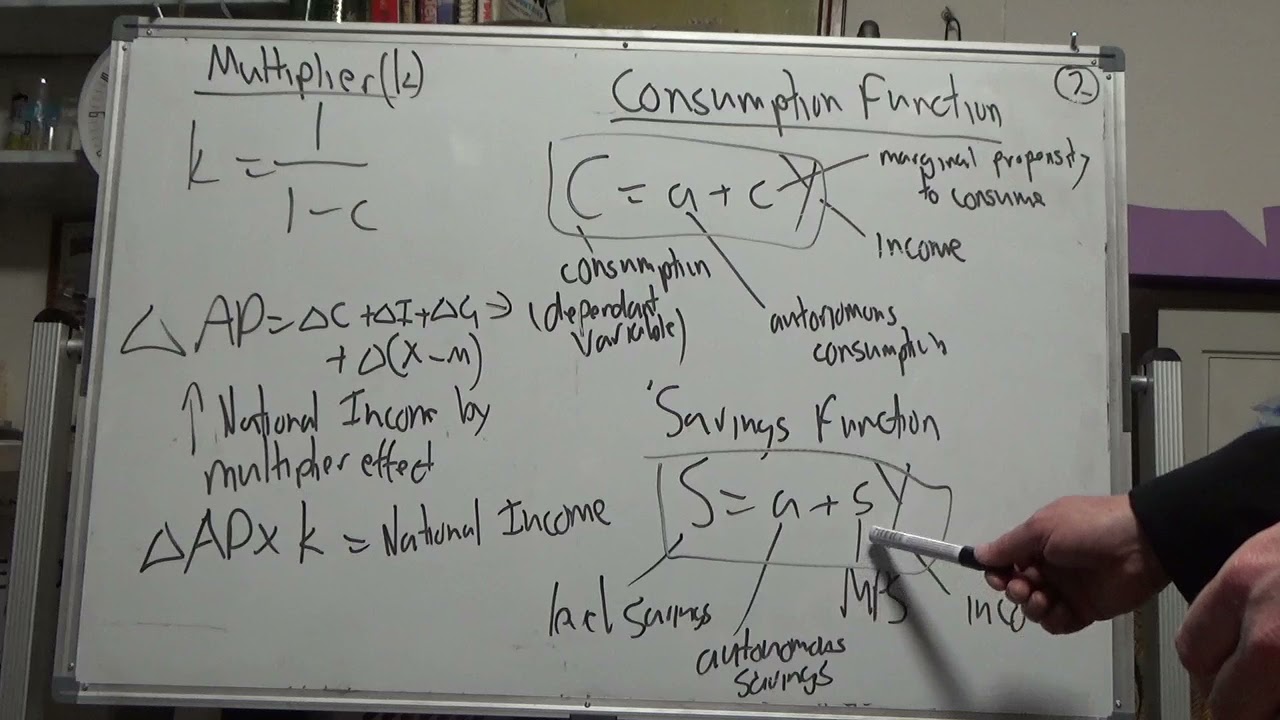 Multiplier(k)
k = 1
1-c
△ AD = ΔC + ΔI + ΔG →
+ Δ(X-M)
↑ National Income by
multiplier effect
△ AD x k = National Income
2
Consumption Function
C = a + cY
marginal propensity
to consume
income
consumption
(dependant
variable)
autonomous
consumption
Savings Function
S = a + sY
savings
autonomous
savings
MPS
inco